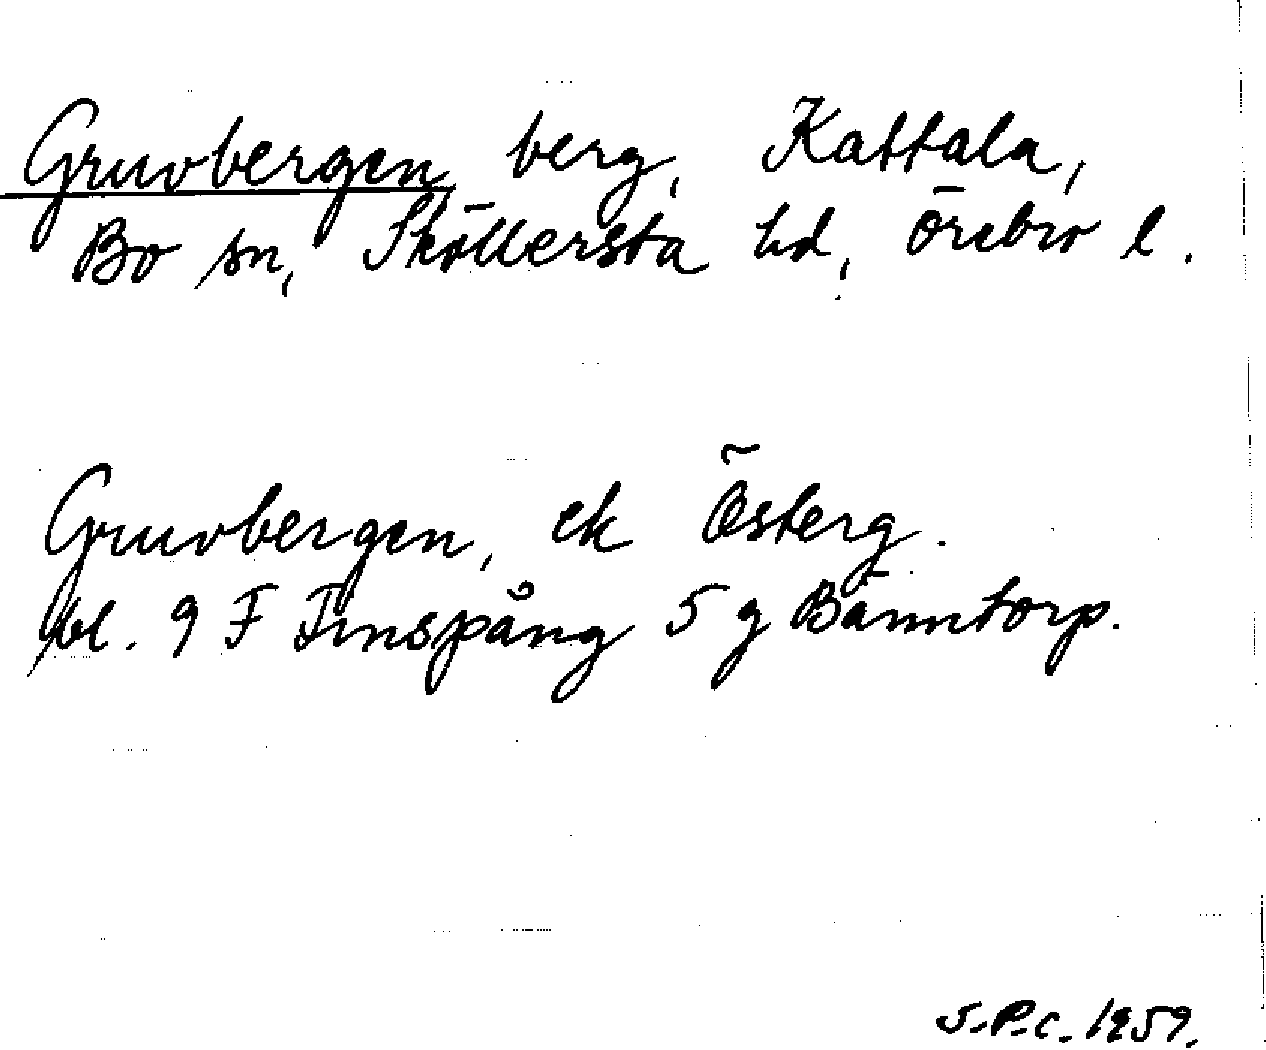 Gruvbergen berg, Kattala,
Bo sn, Sköllersta hd, Örebro l.
Gruvbergen, ek Österg.
bl. 9 F Finspång 5 g Bänntorp.
S.P.C. 1959.